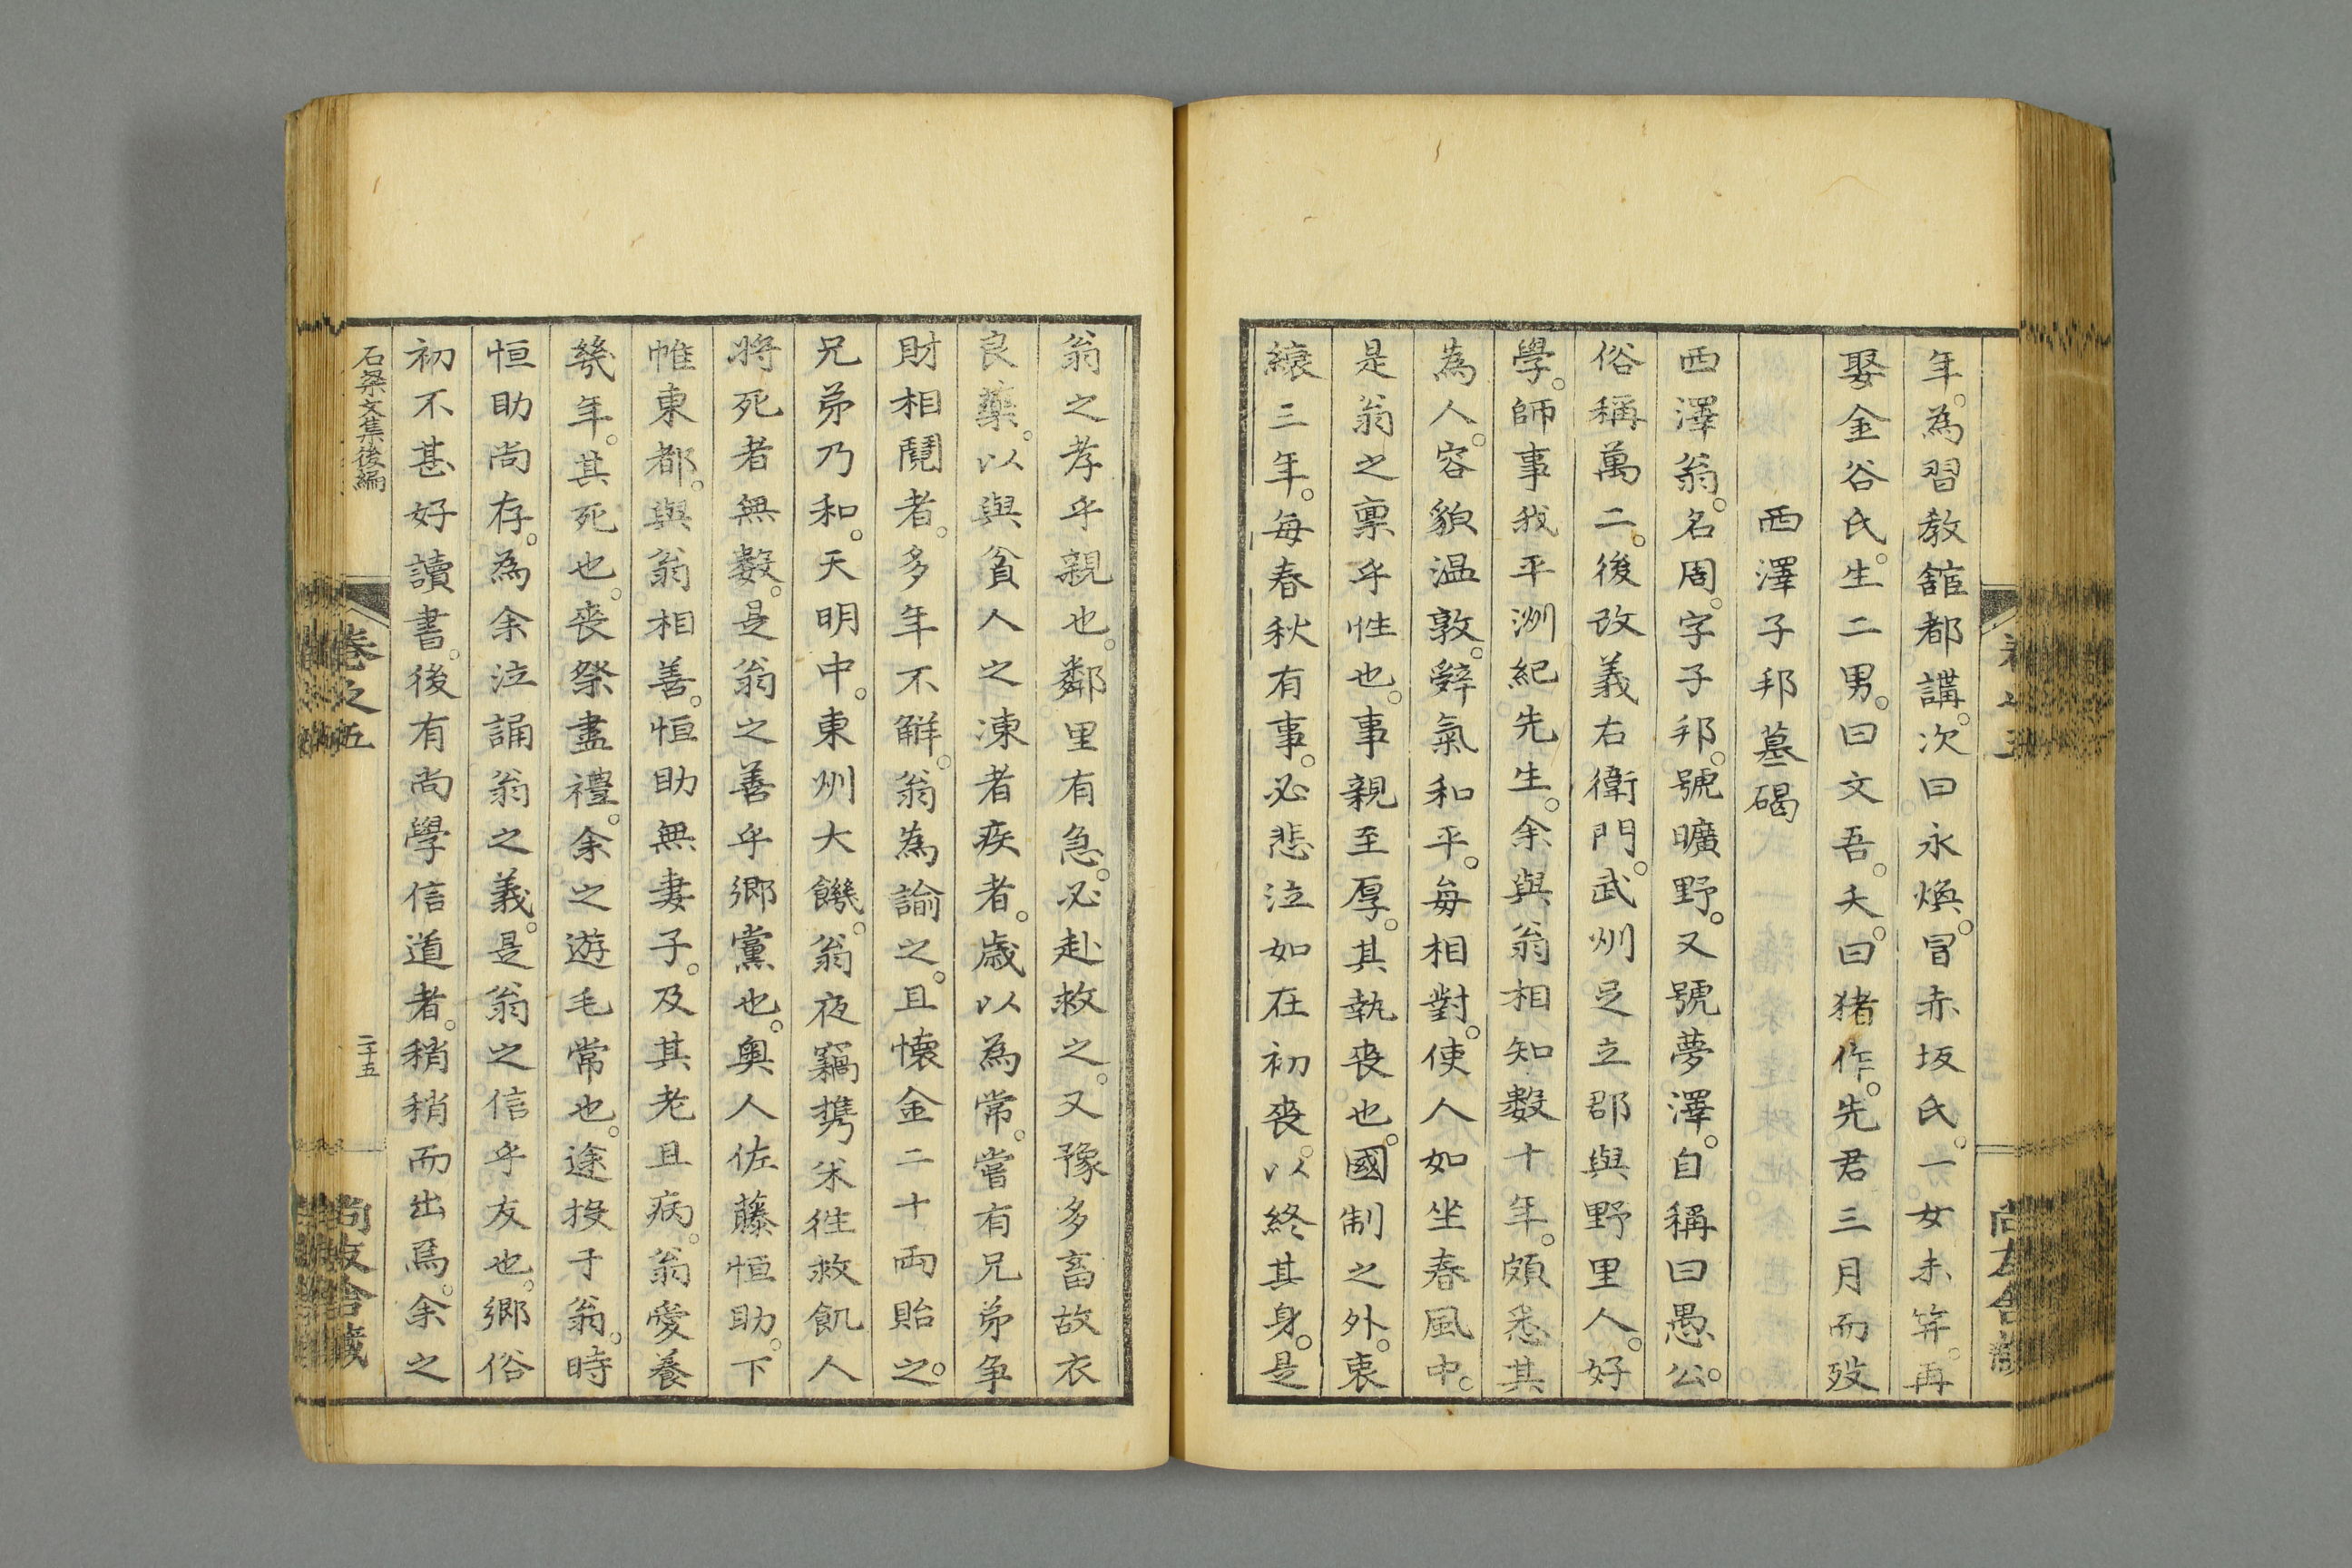 年。為習教舘都講。次曰永煥。冒赤坂氏。一女未笄。再
娶金谷氏。生二男。曰文吾。夭。曰猪作。先君三月而歿
西澤子邦墓碣
西澤翁。名周。字子邦。號曠野。又號夢澤。自稱曰愚公。
俗稱萬二。後改義右衛門。武州足立郡與野里人。好
學。師事我平洲紀先生。余與翁相知數十年。頗悉其
為人。容貌温敦。辭氣和平。每相對。使人如坐春風中。
是翁之稟乎性也。事親至厚。其執喪也。國制之外。衷
縗三年。每春秋有事。必悲泣如在初喪。以終其身。是
翁之孝乎親也。鄰里有急。必赴救之。又豫多畜故衣
良藥。以與貧人之凍者疾者。歳以為常。嘗有兄弟争
財相鬩者。多年不解。翁為諭之。且懷金二十両貽之。
兄弟乃和。天明中。東州大饑。翁夜竊携米往救飢人
將死者無數。是翁之善乎郷黨也。奥人佐藤恒助。下
帷東都。與翁相善。恒助無妻子。及其老且病。翁愛養
幾年。其死也。喪祭盡禮。余之遊毛常也。途投于翁。時
恒助尚存。為余泣誦翁之義。是翁之信乎友也。郷俗
初不甚好讀書。後有尚學信道者。稍稍而出焉。余之
石梁文集後編
卷之五
二十五
尚友舎蔵